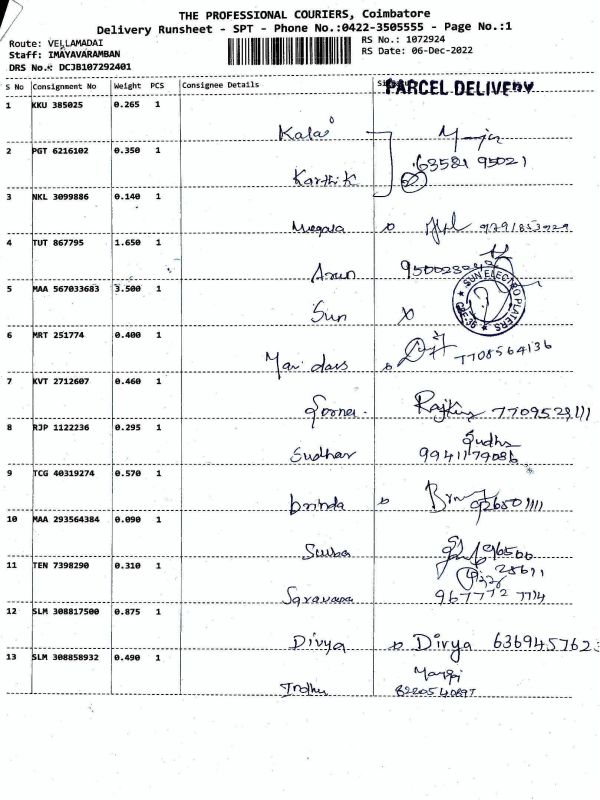 THE PROFESSIONAL COURIERS, Coimbatore
Delivery Runsheet - SPT - Phone No.:0422-3505555 - Page No.:1
Route: VELLAMADAI
RS No.: 1072924
Staff: IMAYAVARAMBAN
RS Date: 06-Dec-2022
DRS No.: DCJB107292401
S No Consignment No Weight PCS Consignee Details
PARCEL DELIVERY
1 KKU 385025 0.265 1
Kalai
2 PGT 6216102 0.350 1
63581 95021
Karthik
3 NKL 3099886 0.140 1
Megala
4 TUT 867795 1.650 1
Arun
5 MAA 567033683 3.500 1
SUN ELECTRO PLATERS
CBE-36
Sun
6 MRT 251774 0.400 1
7708564136
7 KVT 2712607 0.460 1
8 RJP 1122236 0.295 1
Sudha
Sudhar 9941179086
9 TCG 40319274 0.570 1
brinda
10 MAA 293564384 0.090 1
Suba
11 TEN 7398290 0.310 1
Saravana 967772 7714
12 SLM 308817500 0.875 1
Divya Divya 6369457623
13 SLM 308858932 0.490 1
Indhu